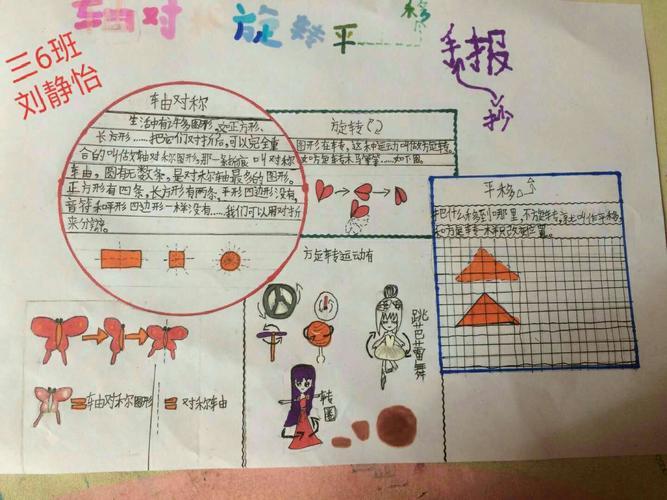 轴对称 旋转 平移
手抄报
三6班
刘静怡
轴对称
生活中有许多图形,如正方形、
长方形……把它们对折后,可以完全重
合的叫做轴对称图形,那一条折痕叫对称
轴,圆有无数条,是对称轴最多的图形。
正方形有四条,长方形有两条,平形四边形没有,
音符和平形四边形一样没有……我们可以用对折
来分辨。
旋转
图形在车专,这种运动叫做方旋转。
如方旋转木马等等……如下图。
平移
把什么移到哪里,不旋转,这
方旋转运动有
跳芭蕾舞
转圈
轴对称图形
对称轴